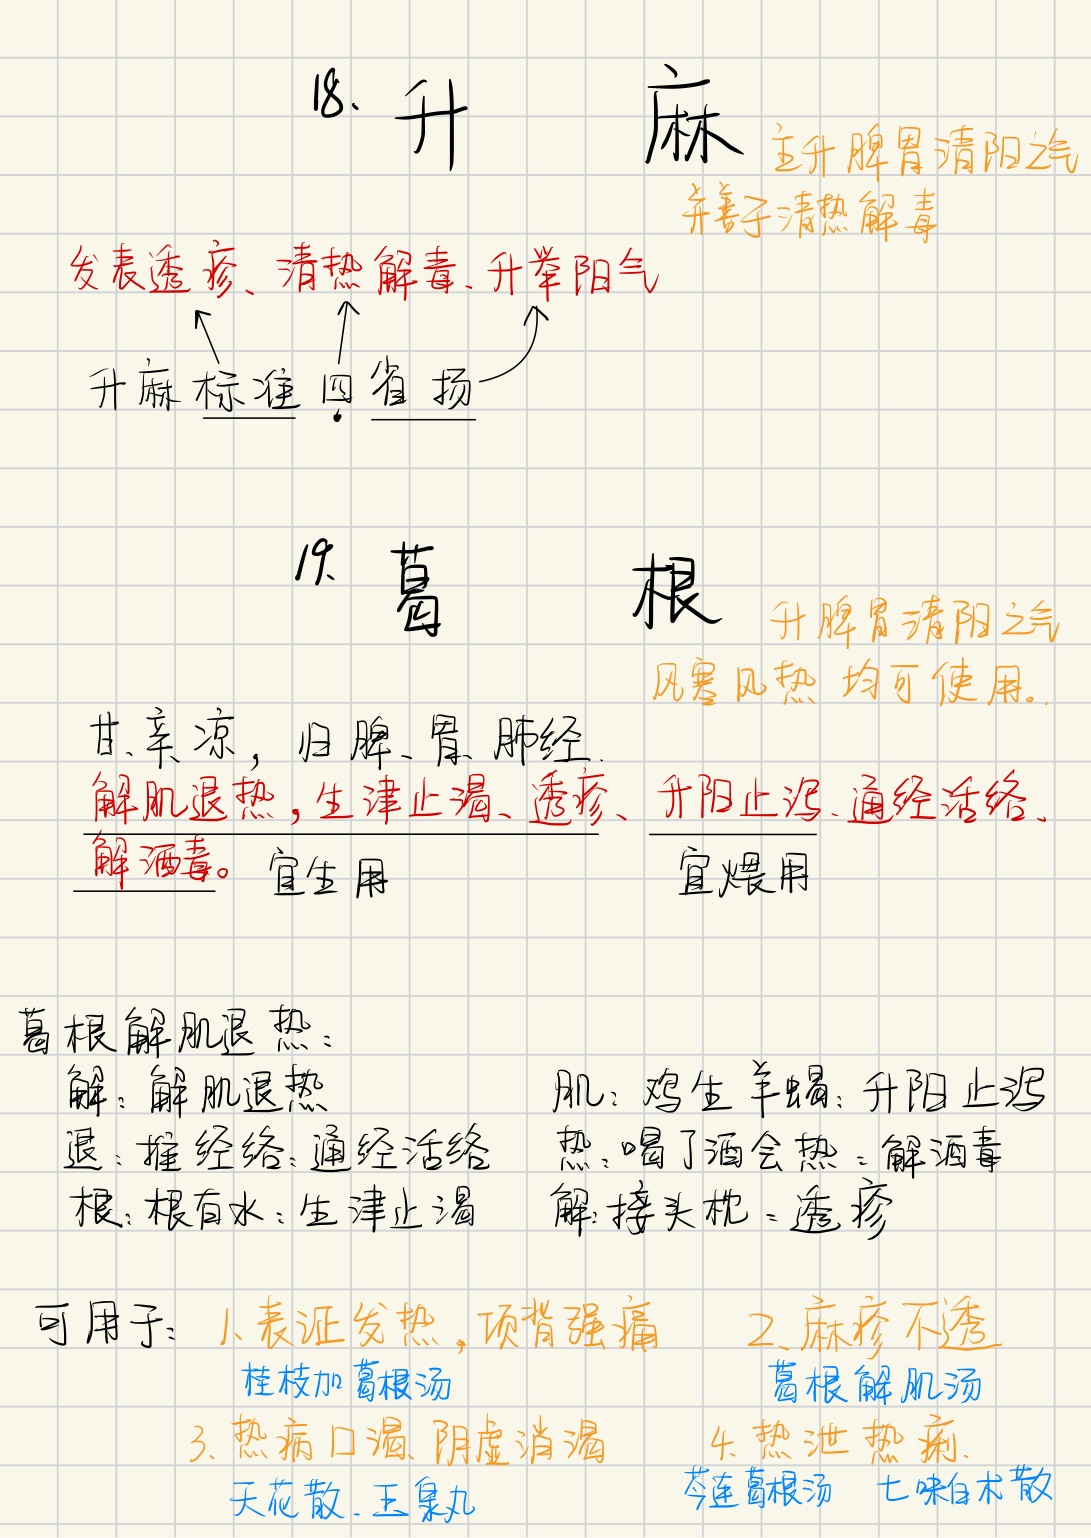 18、升 麻
主升脾胃清阳之气
并善于清热解毒
发表透疹、清热解毒、升举阳气
升麻标准四省扬
19、葛 根
升脾胃清阳之气
风寒风热均可使用。
甘、辛、凉，归脾、胃、肺经.
解肌退热，生津止渴、透疹、升阳止泻、通经活络、
解酒毒。
宜生用 宜煨用
葛根解肌退热：
解：解肌退热 肌：鸡生羊蝎：升阳止泻
退：推经络：通经活络 热：喝了酒会热：解酒毒
根：根有水：生津止渴 解：接头枕：透疹
可用于：1、表证发热，项背强痛 2、麻疹不透
桂枝加葛根汤 葛根解肌汤
3、热病口渴、阴虚消渴 4、热泄热痢、
天花散、玉泉丸 芩连葛根汤 七味白术散